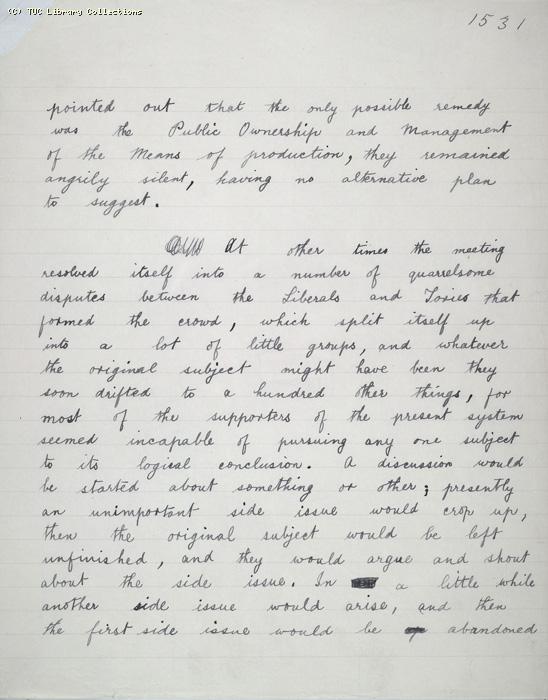 (c) TUC Library Collections
1531
pointed out that the only possible remedy
was the Public Ownership and Management
of the Means of production, they remained
angrily silent, having no alternative plan
to suggest.
At other times the meeting
resolved itself into a number of quarrelsome
disputes between the Liberals and Tories that
formed the crowd, which split itself up
into a lot of little groups, and whatever
the original subject might have been they
soon drifted to a hundred other things, for
most of the supporters of the present system
seemed incapable of pursuing any one subject
to its logical conclusion. A discussion would
be started about something or other; presently
an unimportant side issue would crop up,
then the original subject would be left
unfinished, and they would argue and shout
about the side issue. In a little while
another side issue would arise, and then
the first side issue would be abandoned